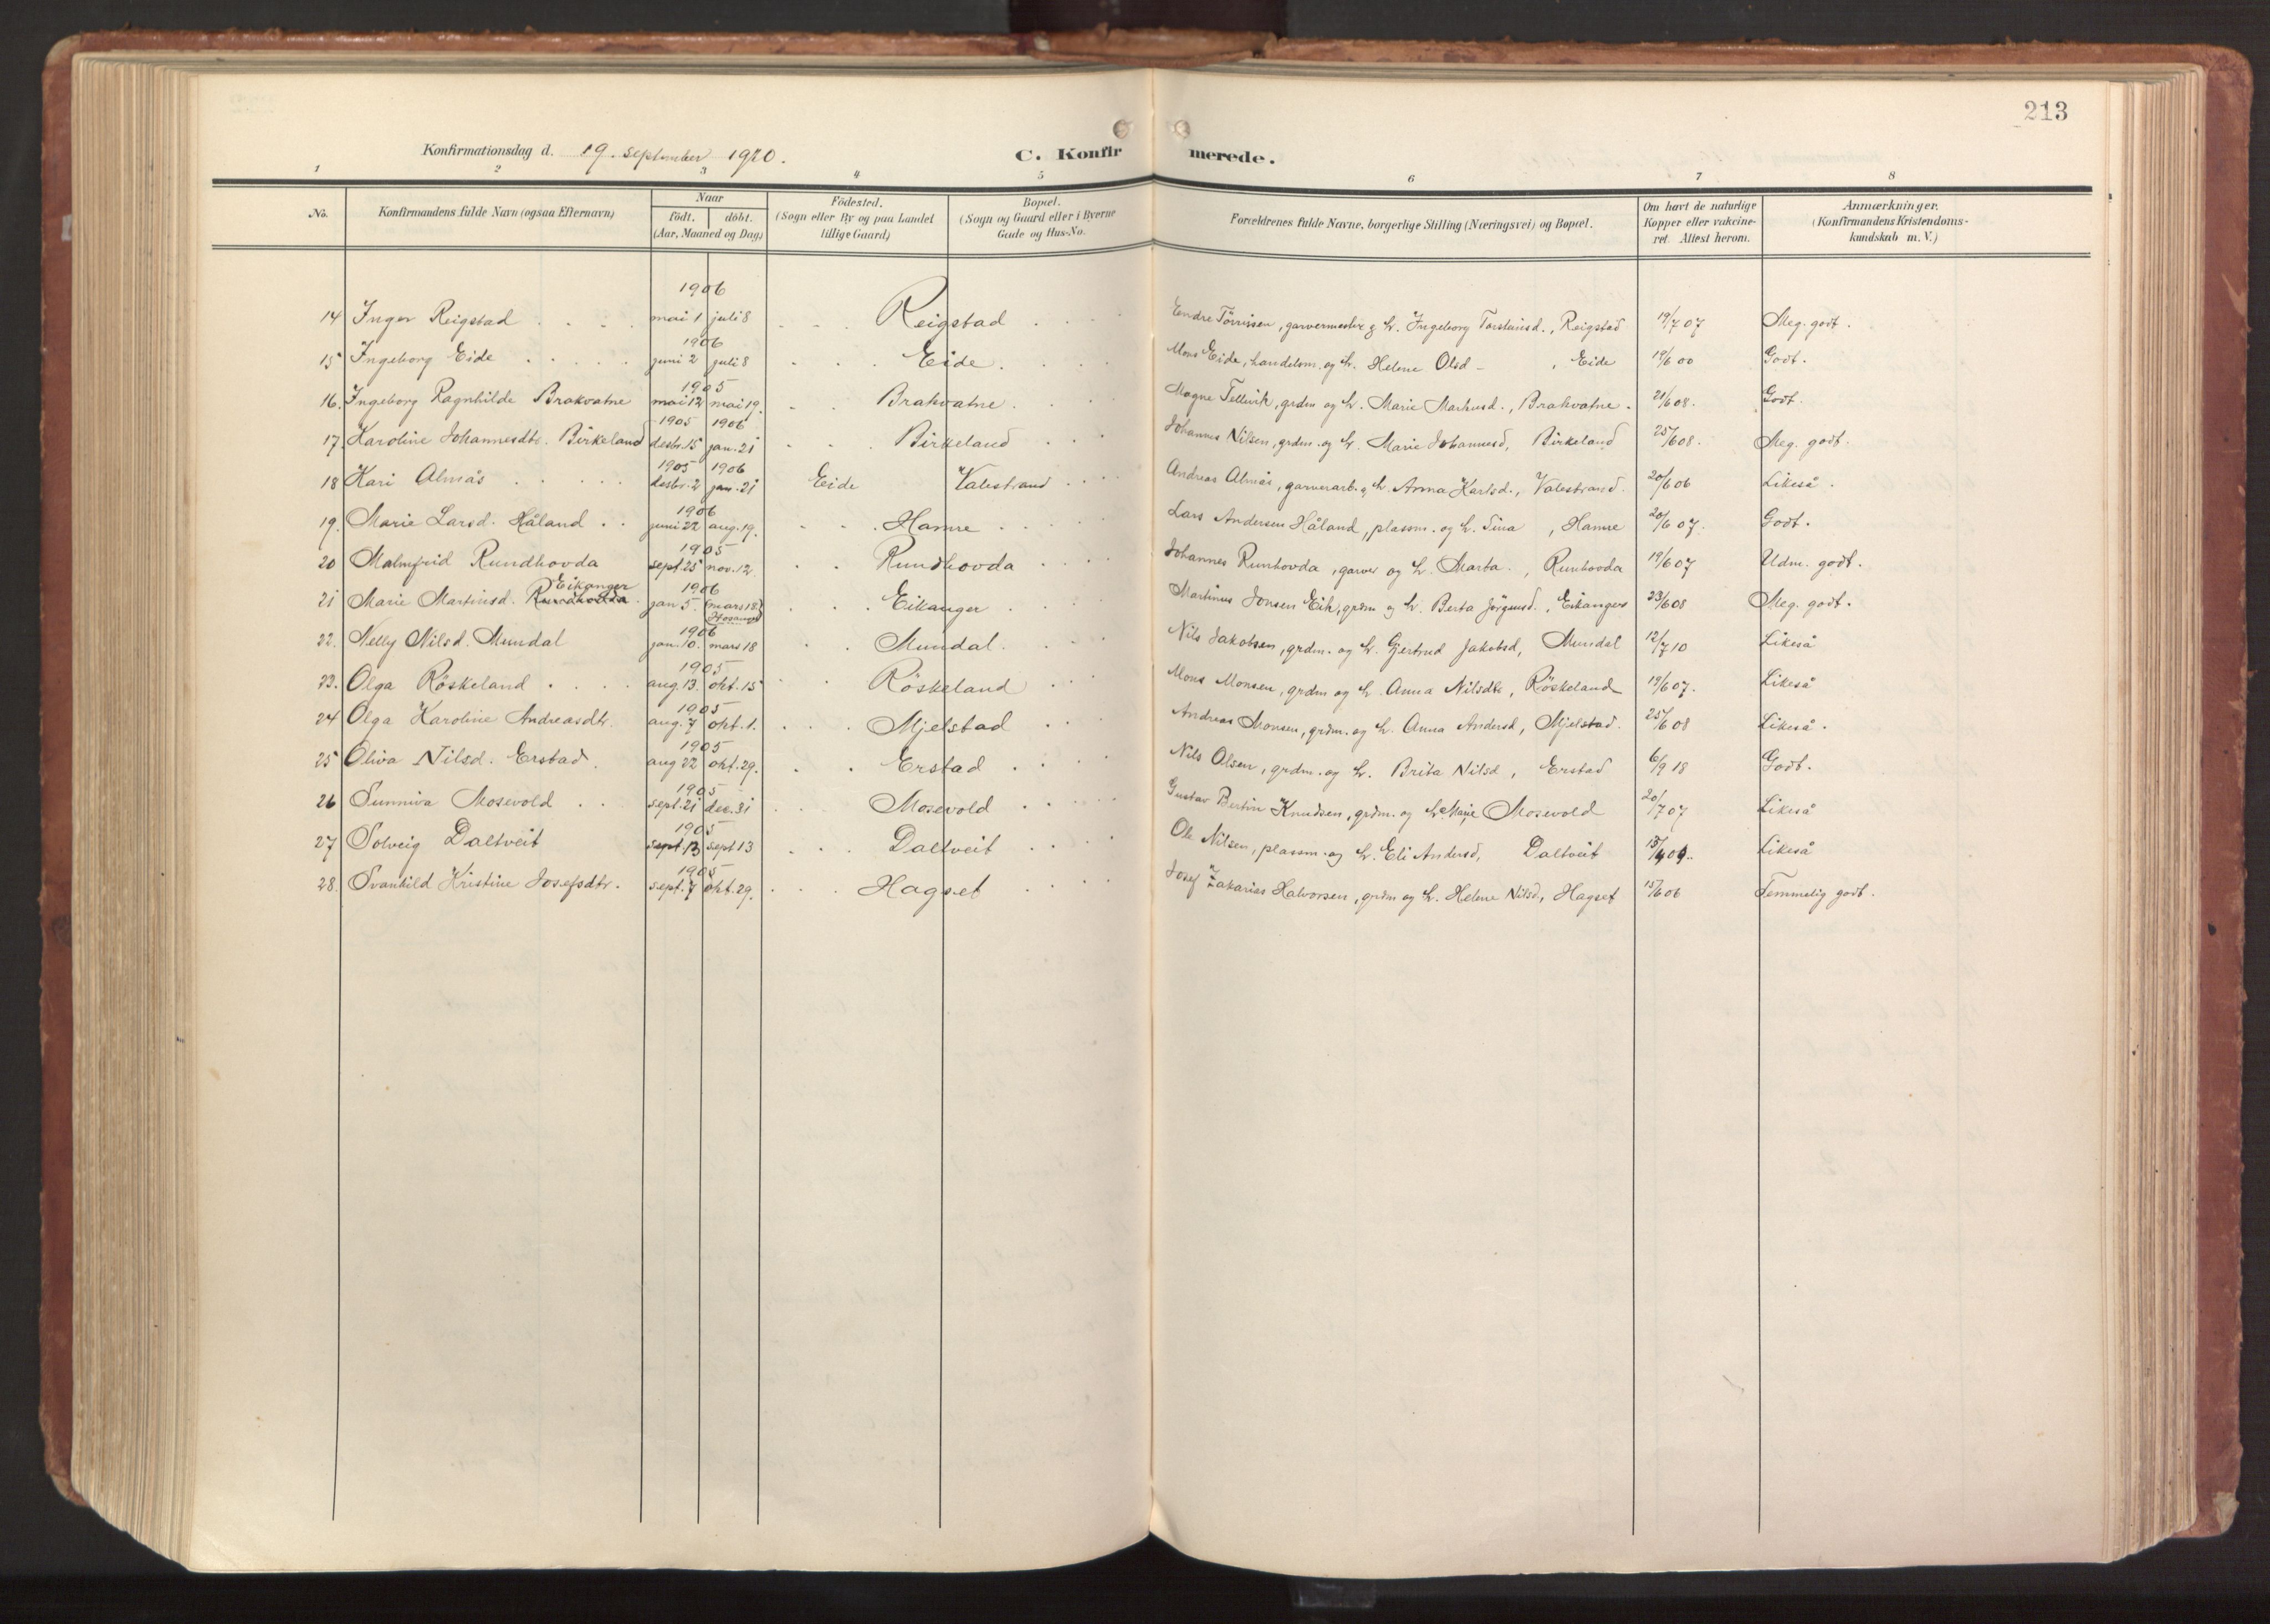 213
Konfirmationsdag d. 19. september 1920. C. Konfirmerede.
1 2 3 4 5 6 7 8
No. Konfirmandens fulde Navn (ogsaa Efternavn) Naar födt. döbt. (Aar, Maaned og Dag) Födested. (Sogn eller By og paa Landet tillige Gaard) Bopæl. (Sogn og Gaard eller i Byerne Gade og Hus-No. Forældrenes fulde Navne, borgerlige Stilling (Næringsvei) og Bopæl. Om havt de naturlige Kopper eller vakcineret Attest herom. Anmærkninger. (Konfirmandens Kristendomskundskab m. V.)
1906
14 Inger Reigstad mai 1 juli 8 Reigstad Endre Törrissen, garvermester & h. Ingeborg Torsteinsd., Reigstad 19/7 07 Meg. godt.
1906
15 Ingeborg Eide juni 2 juli 8 Eide. Mons Eide, handelsm. og h. Helene Olsd - , Eide 19/6 00 Godt.
1905
16. Ingeborg Ragnhilde Brakvatne mai 12 mai 19. Brakvatne. Magne Tellevik, grdm og h. Marie Markusd., Brakvatne. 21/6 08. Godt.
1905 1906
17. Karoline Johannesdtr. Birkeland desbr. 15 jan. 21 Birkeland Johannes Nilsen, grdm. og h. Marie Johannesd, Birkeland 25/6 08. Meg. godt.
1905 1906
18 Kari Almås desbr. 2 jan. 21 Eide Valestrand Andreas Almås, garverarb. & h. Anna Karlsd., Valestrand. 20/6 06 Likeså.
1906
19. Marie Larsd. Håland juni 22 aug. 19. Hamre Lars Andersen Håland, plassm. og h. Sina , Hamre 20/6 07. Godt.
1905
20 Malmfrid Rundhovda sept. 25 nov. 12. Rundhovda Johannes Runhovda, garver og h. Marta. , Runhovda 19/6 07 Udm. godt.
Eikanger 1906
21 Marie Martinsd. Rundhovda. jan 5. (mars 18) Hosanger Eikanger Martinus Jonsen Eik, grdm og h. Berta Jörgensd., Eikanger 23/6 08 Meg. godt.
1906
22. Nelly Nilsd. Mundal jan. 10. mars 18 Mundal. Nils Jakobsen, grdm. og h. Gjertrud Jakobsd, Mundal 12/7 10 Likeså
1905
23. Olga Röskeland aug. 13. okt. 15 Röskeland Mons Monsen, grdm og h. Anna Nilsdtr, Röskeland 19/6 07. Likeså
1905
24 Olga Karoline Andreasdtr. aug. 7 okt. 1. Mjelstad Andreas Monsen, grdm. og h. Anna Andersd, Mjelstad. 25/6 08 Likeså.
1905
25 Oliva Nilsd. Erstad. aug 22 okt. 29. Erstad Nils Olsen, grdm. og h. Brita Nilsd, Erstad 6/9 18 Godt.
1905
26 Sunniva Mosevold sept. 21 dec. 31 Mosevold Gustav Bertin Knudsen, grdm. og h. Marie Mosevold 20/7 07 Likeså
1905
27 Solveig Daltveit sept. 13 sept 13 Daltveit Ole Nilsen, plassm. og h. Eli Andersd, Daltveit Likeså
1905
28. Svanhild Kristine Josefsdtr. sept. 7 okt. 29. Hagset Josef Zakarias Halvorsen, grdm og h. Helene Nilsd, Hagset 15/6 06 Temmelig godt.